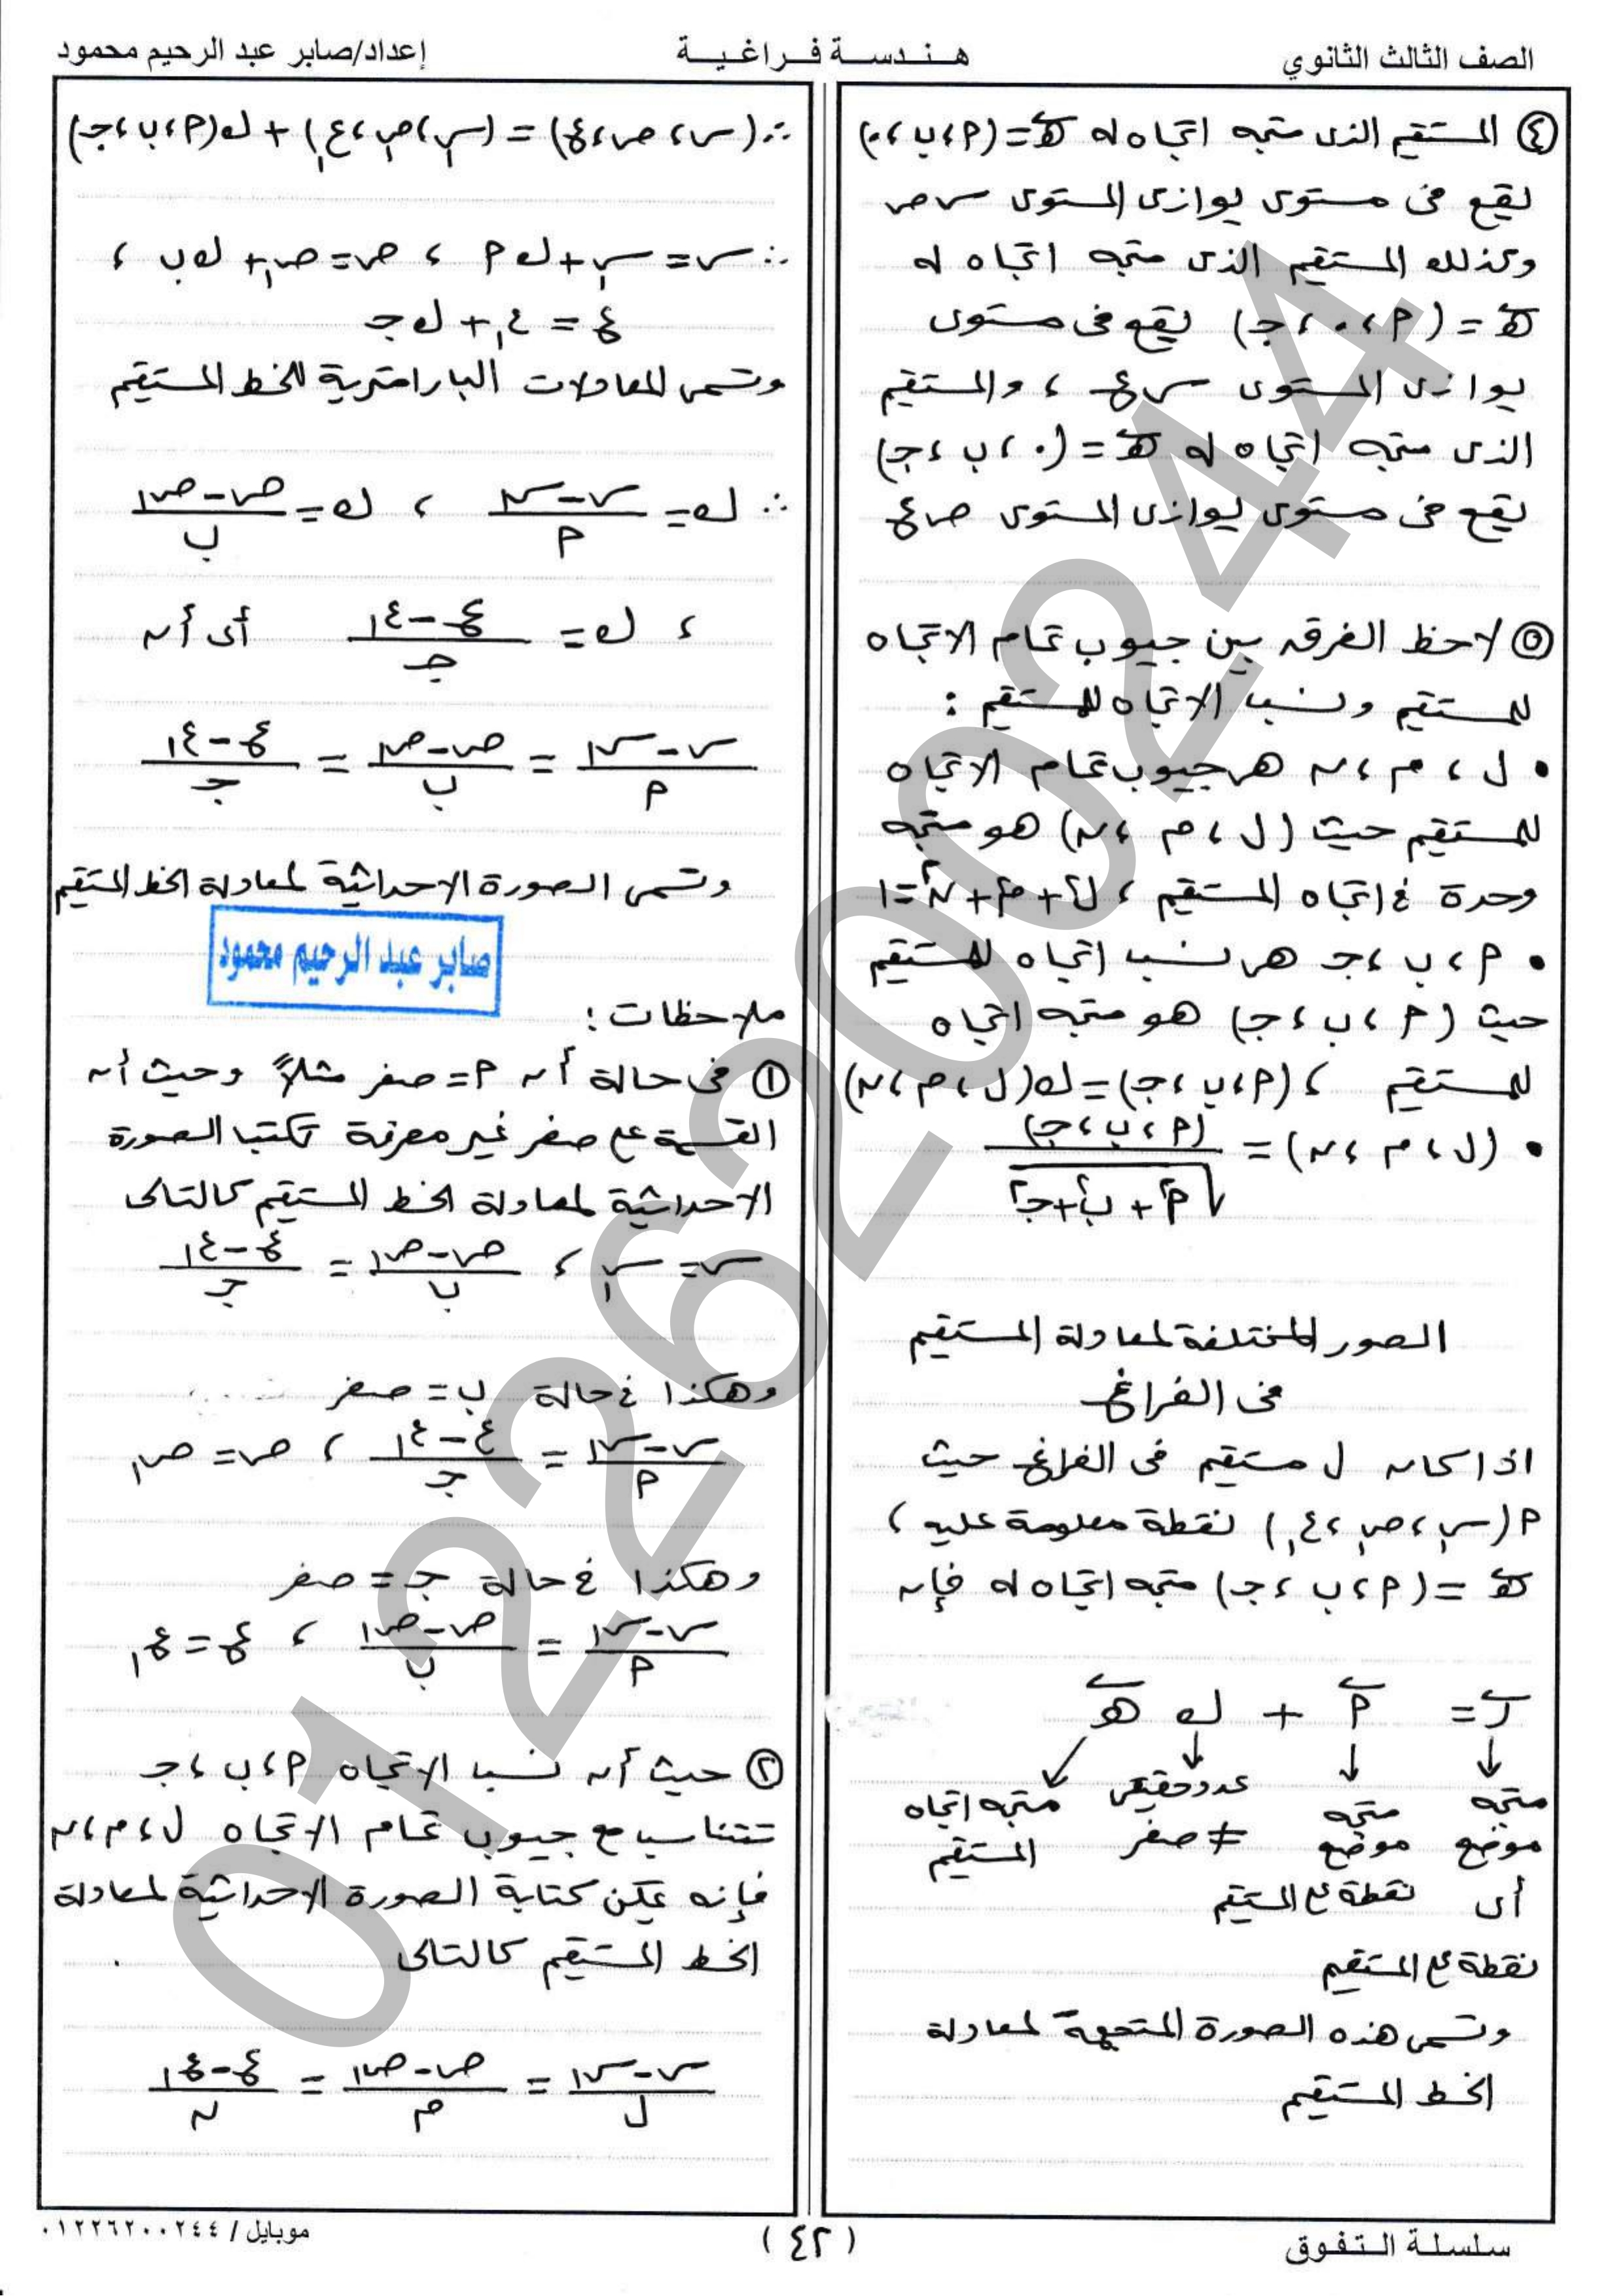 الصف الثالث الثانوي
هـنـدسـة فـراغـيـة
إعداد/صابر عبد الرحيم محمود
④ المستقيم الذى متجه اتجاه له هـ = (أ، ب، ٠)
يقع فى مستوى يوازى المستوى س ص
وكذلك المستقيم الذى متجه اتجاه له
هـ = (أ، ٠، جـ) يقع فى مستوى
يوازى المستوى س ع ، والمستقيم
الذى متجه اتجاه له هـ = (٠، ب، جـ)
يقع فى مستوى يوازى المستوى ص ع
⑤ لاحظ الفرق بين جيوب تمام الاتجاه
للمستقيم ونسب الاتجاه للمستقيم :
• ل ، م ، ن هى جيوب تمام الاتجاه
للمستقيم حيث (ل ، م ، ن) هو متجه
وحدة فى اتجاه المستقيم ، ل² + م² + ن² = ١
• أ، ب، جـ هى نسب اتجاه للمستقيم
حيث (أ، ب، جـ) هو متجه اتجاه
للمستقيم ، (أ، ب، جـ) = ك(ل، م، ن)
• (ل، م، ن) = (أ، ب، جـ) / √(أ² + ب² + جـ²)
الصور المختلفة لمعادلة المستقيم
فى الفراغ
اذا كان ل مستقيم فى الفراغ حيث
أ(س₁، ص₁، ع₁) نقطة معلومة عليه ،
هـ = (أ، ب، جـ) متجه اتجاه له فإن
ر = أ + ك هـ
متجه متجه عدد حقيقى متجه اتجاه
موضع موضع ≠ صفر المستقيم
أى نقطة على المستقيم
نقطة على المستقيم
وتسمى هذه الصورة المتجهة لمعادلة
الخط المستقيم
∴ (س، ص، ع) = (س₁، ص₁، ع₁) + ك(أ، ب، جـ)
∴ س = س₁ + ك أ ، ص = ص₁ + ك ب ،
ع = ع₁ + ك جـ
وتسمى المعادلات البارامترية للخط المستقيم
∴ ك = (س - س₁)/أ ، ك = (ص - ص₁)/ب
، ك = (ع - ع₁)/جـ أى أن
(س - س₁)/أ = (ص - ص₁)/ب = (ع - ع₁)/جـ
وتسمى الصورة الاحداثية لمعادلة الخط المستقيم
صابر عبد الرحيم محمود
ملاحظات :
① فى حالة أن أ = صفر مثلاً وحيث أن
القسمة على صفر غير معرفة تكتب الصورة
الاحداثية لمعادلة الخط المستقيم كالتالى
س = س₁ ، (ص - ص₁)/ب = (ع - ع₁)/جـ
وهكذا فى حالة ب = صفر
(س - س₁)/أ = (ع - ع₁)/جـ ، ص = ص₁
وهكذا فى حالة جـ = صفر
(س - س₁)/أ = (ص - ص₁)/ب ، ع = ع₁
② حيث أن نسب الاتجاه أ، ب، جـ
تتناسب مع جيوب تمام الاتجاه ل، م، ن
فإنه يمكن كتابة الصورة الاحداثية لمعادلة
الخط المستقيم كالتالى
(س - س₁)/ل = (ص - ص₁)/م = (ع - ع₁)/ن
01226200244
سلسلة التفوق
(٤٢)
موبايل / ٠١٢٢٦٢٠٠٢٤٤